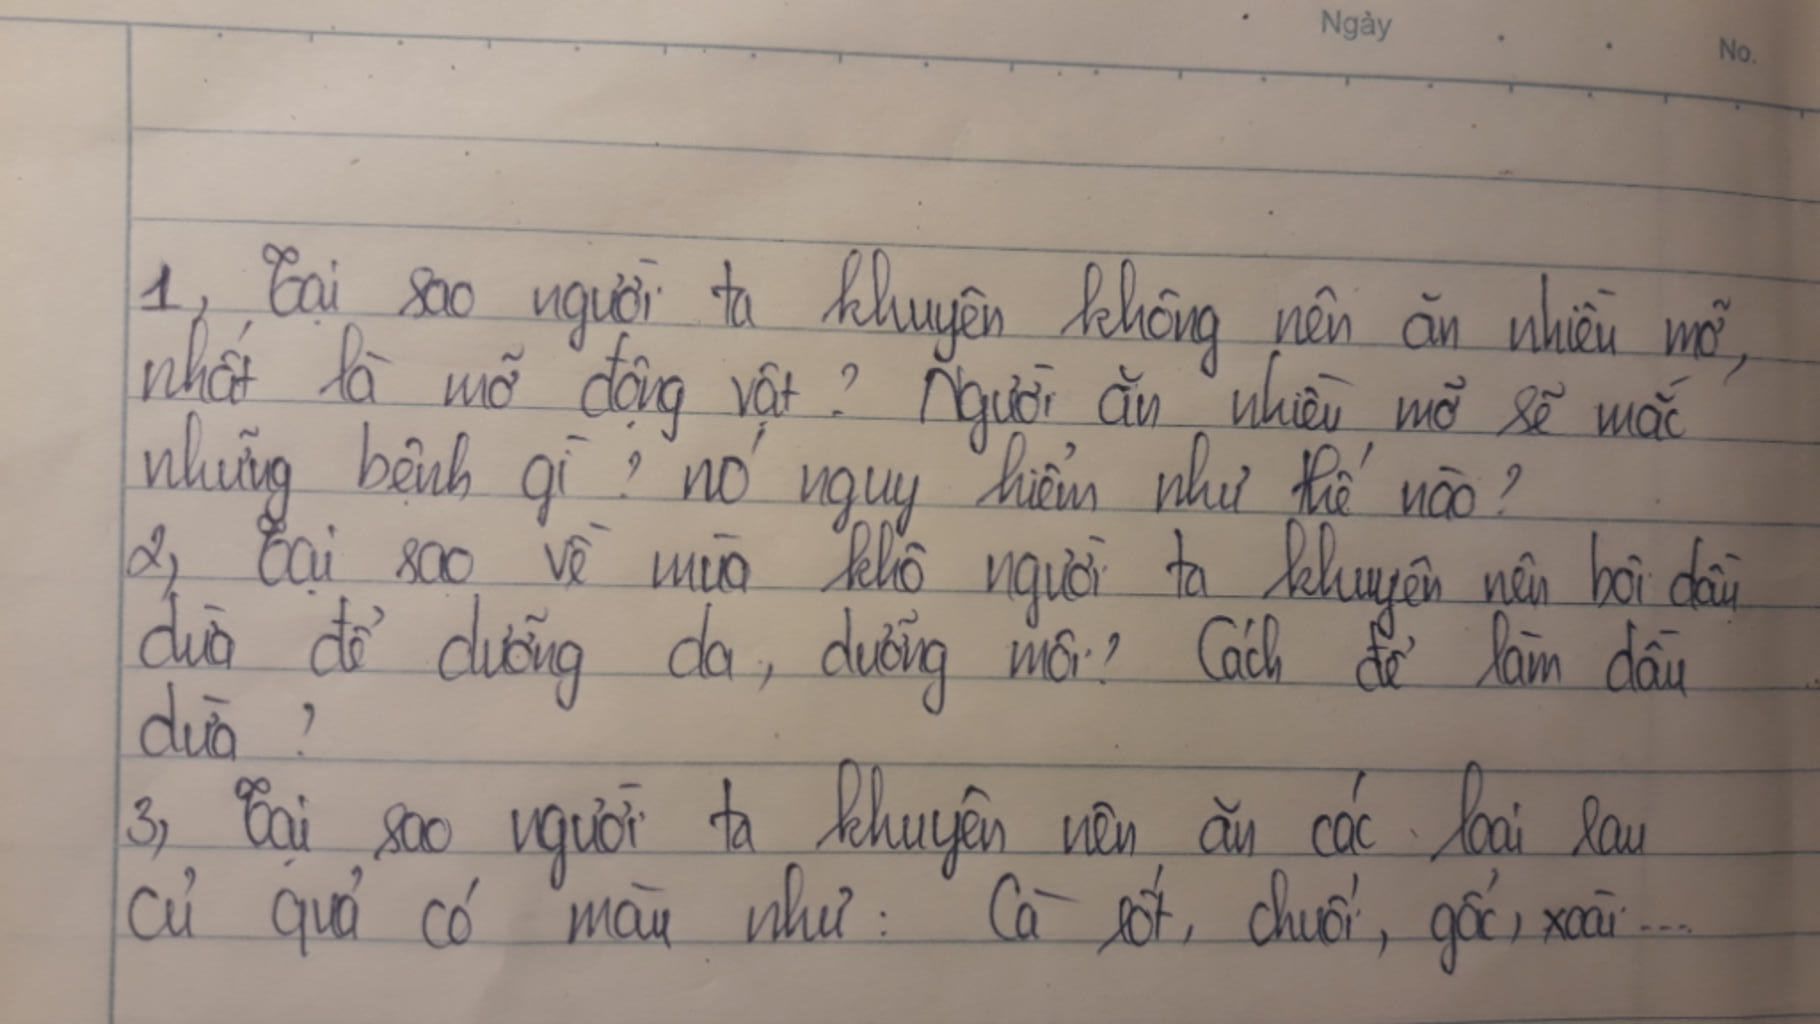 Ngày No.
1, Tại sao người ta khuyên không nên ăn nhiều mỡ,
nhất là mỡ động vật? Người ăn nhiều mỡ sẽ mắc
những bệnh gì? nó nguy hiểm như thế nào?
2, Tại sao về mùa khô người ta khuyên nên bôi dầu
dừa để dưỡng da, dưỡng môi? Cách để làm dầu
dừa?
3, Tại sao người ta khuyên nên ăn các loại rau
củ quả có màu như: Cà rốt, chuối, gấc, xoài....